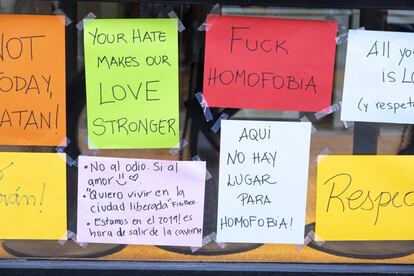 NOT
TODAY,
SATAN!
YOUR HATE
MAKES OUR
LOVE
STRONGER
FUCK
HOMOFOBIA
All you
is L
(y respet
rán!
• No al odio. Sí al
amor
• "Quiero vivir en la
ciudad liberada" Fito Páez.
• Estamos en el 2019! es
hora de salir de la caverna
AQUI
NO HAY
LUGAR
PARA
HOMOFOBIA!
Respe